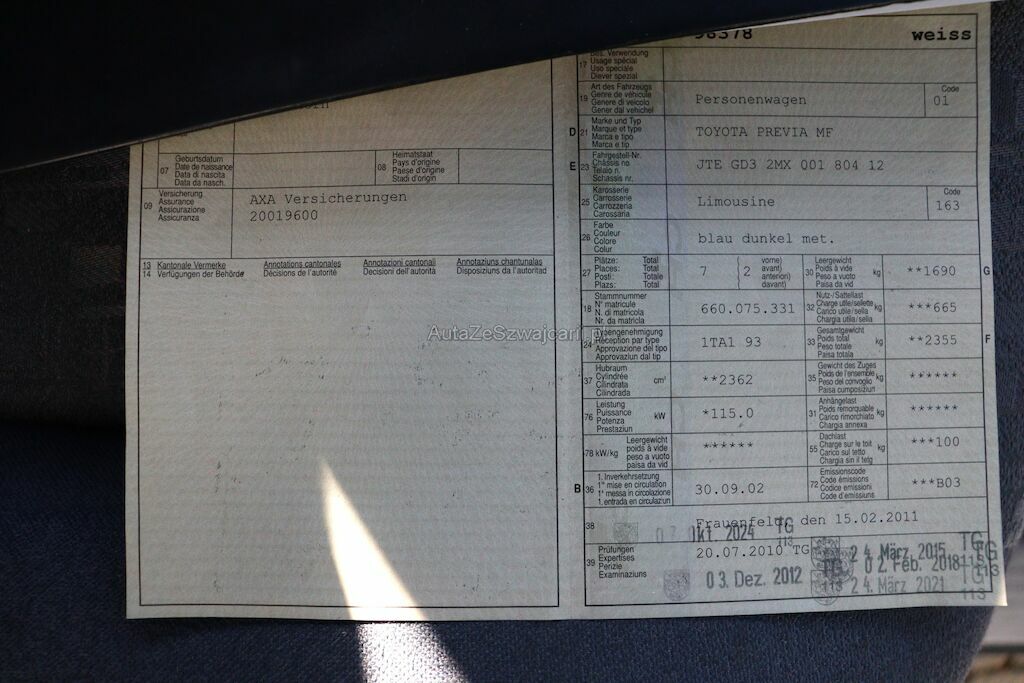 98378
weiss
17
Bes. Verwendung
Usage spécial
Uso speciale
Diever spezial
19
Art des Fahrzeugs
Genre de véhicule
Genere di veicolo
Gener dal vehichel
Personenwagen
Code
01
D 21
Marke und Typ
Marque et type
Marca e tipo
Marca e tip
TOYOTA PREVIA MF
E 23
Fahrgestell-Nr.
Châssis no
Telaio n.
Schassis nr.
JTE GD3 2MX 001 804 12
25
Karosserie
Carrosserie
Carrozzeria
Carossaria
Limousine
Code
163
26
Farbe
Couleur
Colore
Colur
blau dunkel met.
27
Plätze: Total
Places: Total
Posti: Totale
Plazs: Total
7
2
vorne)
avant)
anteriori)
davant)
30
Leergewicht
Poids à vide
Peso a vuoto
Paisa da vid
kg
**1690
G
18
Stammnummer
N° matricule
N. di matricola
Nr. da matricla
660.075.331
32
Nutz-/Sattellast
Charge utile/sellette
Carico utile/sella
Chargia utila/sella
kg
***665
24
Typengenehmigung
Réception par type
Approvazione del tipo
Approvaziun dal tip
1TA1 93
33
Gesamtgewicht
Poids total
Peso totale
Paisa totala
kg
**2355
F
37
Hubraum
Cylindrée
Cilindrata
Cilindrada
cm³
**2362
35
Gewicht des Zuges
Poids de l'ensemble
Peso del convoglio
Paisa cumposiziun
kg
******
76
Leistung
Puissance
Potenza
Prestaziun
kW
*115.0
31
Anhängelast
Poids remorquable
Carico rimorchiato
Chargia annexa
kg
******
78 kW/kg
Leergewicht
poids à vide
peso a vuoto
paisa da vid
******
55
Dachlast
Charge sur le toit
Carico sul tetto
Chargia sin il tetg
kg
***100
B 36
1. Inverkehrsetzung
1re mise en circulation
1a messa in circolazione
1. entrada en circulaziun
30.09.02
72
Emissionscode
Code émissions
Codice emissioni
Code d'emissiuns
***B03
38
Frauenfeld, den 15.02.2011
07. Okt. 2024
TG
113
39
Prüfungen
Expertises
Perizie
Examinaziuns
20.07.2010 TG
03. Dez. 2012
TG
113
24. März 2015
02. Feb. 2018
24. März 2021
TG
113
TG
113
TG
113
07
Geburtsdatum
Date de naissance
Data di nascita
Data da nasch.
08
Heimatstaat
Pays d'origine
Paese d'origine
Stadi d'origin
09
Versicherung
Assurance
Assicurazione
Assicuranza
AXA Versicherungen
20019600
13
14
Kantonale Vermerke
Verfügungen der Behörde
Annotations cantonales
Décisions de l'autorité
Annotazioni cantonali
Decisioni dell'autorità
Annotaziuns chantunalas
Disposiziuns da l'autoritad
AutaZeSzwajcarii.p